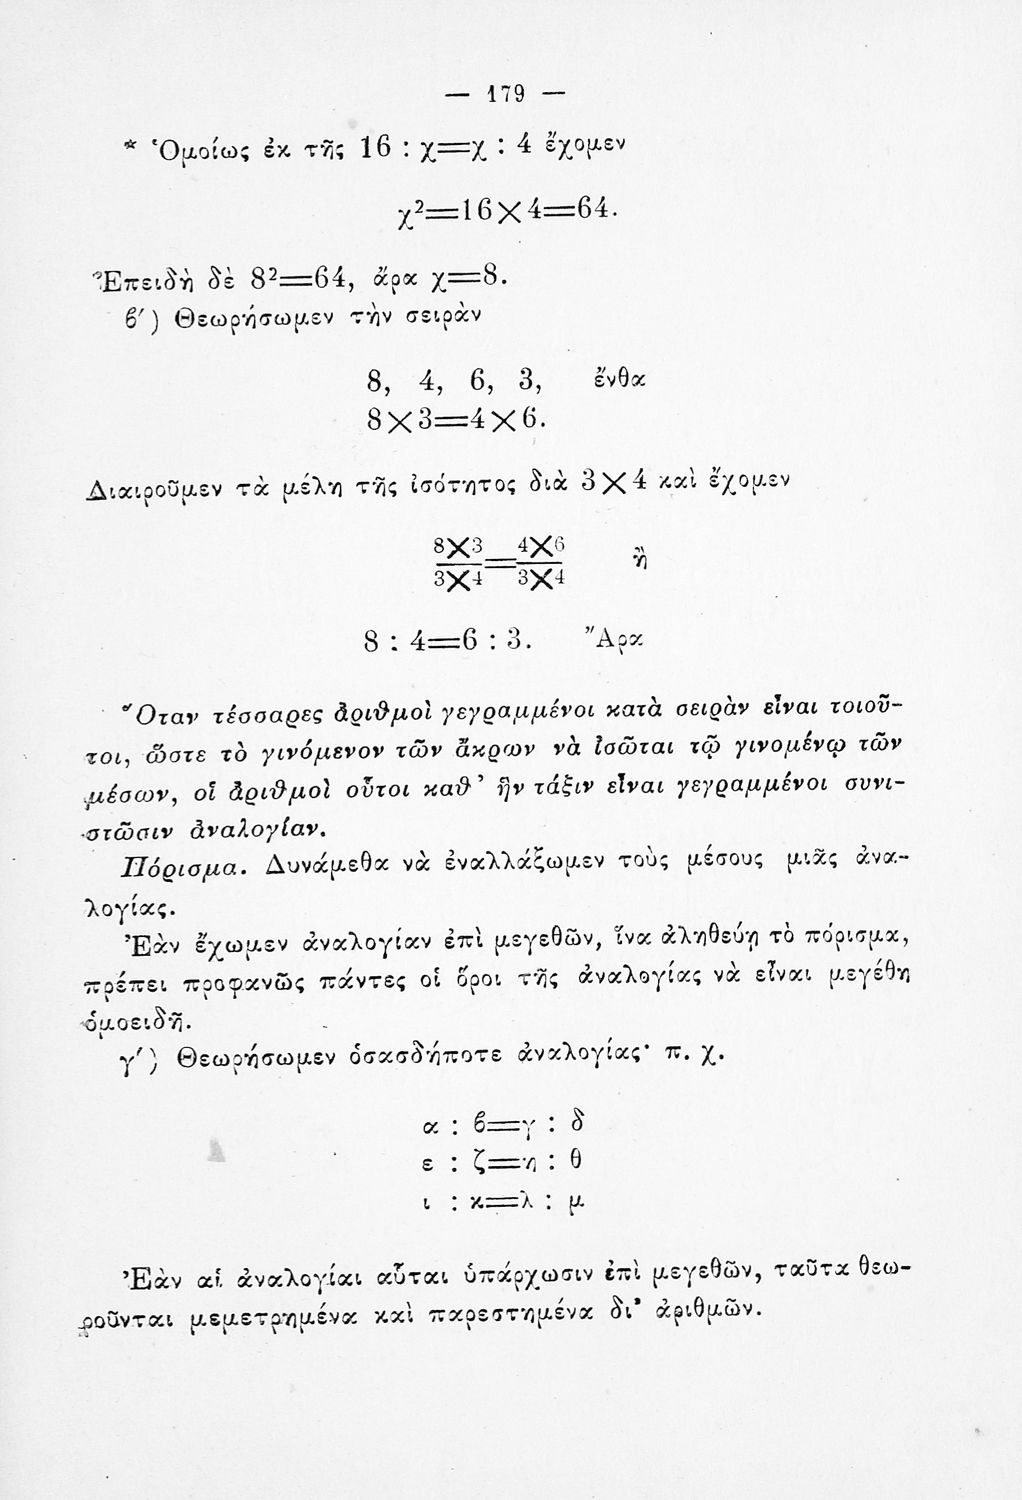 — 179 —
* Ὁμοίως ἐκ τῆς 16 : χ=χ : 4 ἔχομεν
χ²=16×4=64.
Ἐπειδὴ δὲ 8²=64, ἄρα χ=8.
ϐ′) Θεωρήσωμεν τὴν σειρὰν
8, 4, 6, 3, ἔνθα
8×3=4×6.
Διαιροῦμεν τὰ μέλη τῆς ἰσότητος διὰ 3×4 καὶ ἔχομεν
8×3 4×6
— = — ἢ
3×4 3×4
8 : 4=6 : 3. Ἄρα
Ὅταν τέσσαρες ἀριθμοὶ γεγραμμένοι κατὰ σειρὰν εἶναι τοιοῦ-
τοι, ὥστε τὸ γινόμενον τῶν ἄκρων νὰ ἰσῶται τῷ γινομένῳ τῶν
μέσων, οἱ ἀριθμοὶ οὗτοι καθ’ ἣν τάξιν εἶναι γεγραμμένοι συνι-
στῶσιν ἀναλογίαν.
Πόρισμα. Δυνάμεθα νὰ ἐναλλάξωμεν τοὺς μέσους μιᾶς ἀνα-
λογίας.
Ἐὰν ἔχωμεν ἀναλογίαν ἐπὶ μεγεθῶν, ἵνα ἀληθεύῃ τὸ πόρισμα,
πρέπει προφανῶς πάντες οἱ ὅροι τῆς ἀναλογίας νὰ εἶναι μεγέθη
ὁμοειδῆ.
γ′) Θεωρήσωμεν ὁσασδήποτε ἀναλογίας· π. χ.
α : ϐ=γ : δ
ε : ζ=η : θ
ι : κ=λ : μ
Ἐὰν αἱ ἀναλογίαι αὗται ὑπάρχωσιν ἐπὶ μεγεθῶν, ταῦτα θεω-
ροῦνται μεμετρημένα καὶ παρεστημένα δι’ ἀριθμῶν.